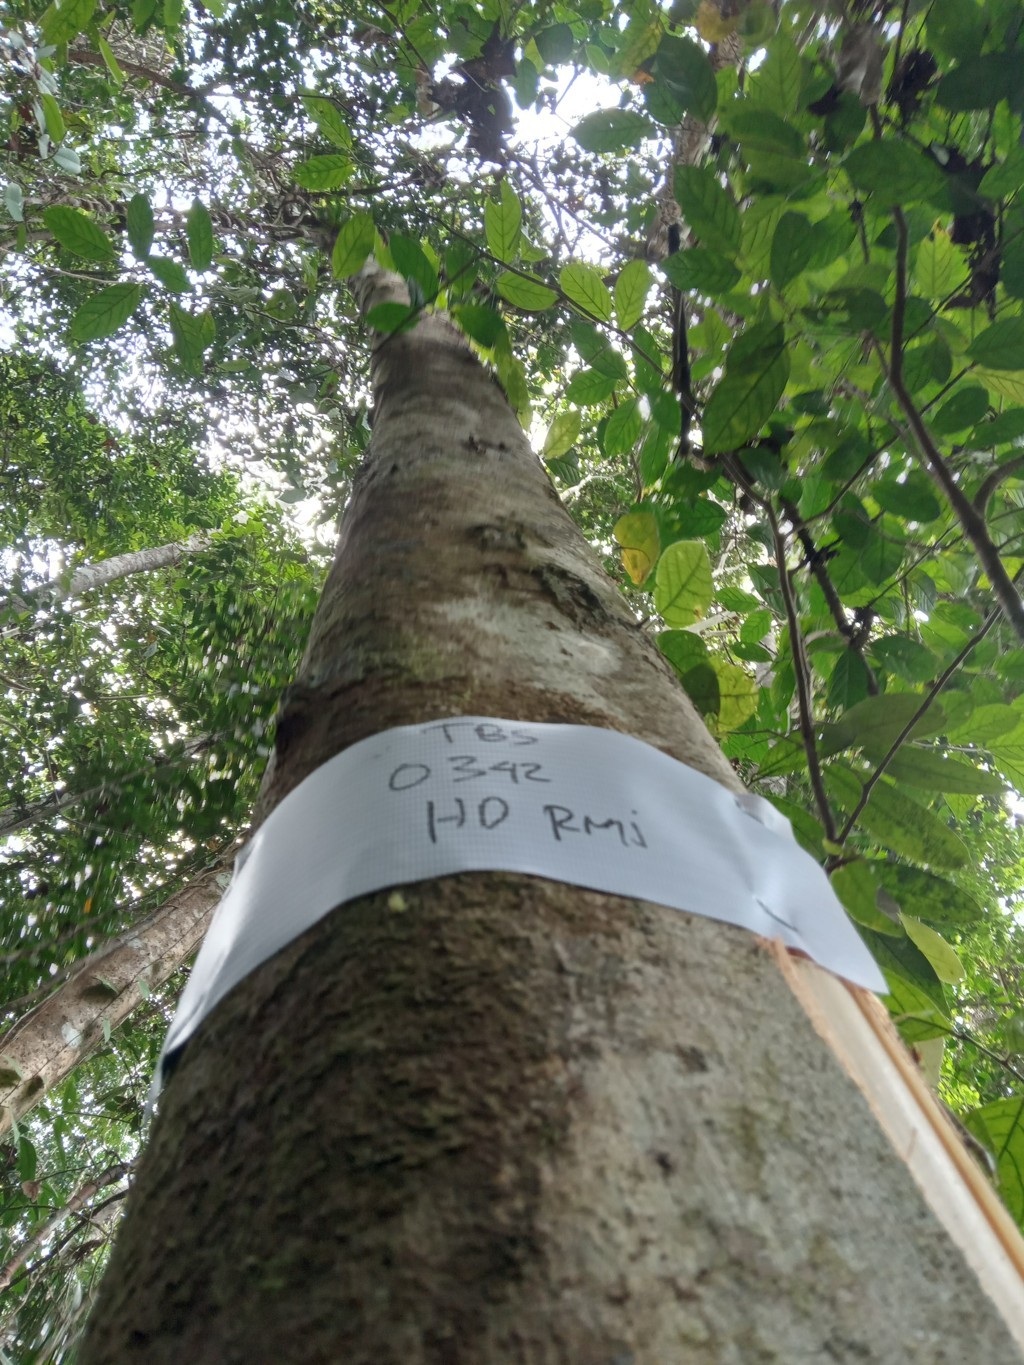 TBS
0342
HD RMj